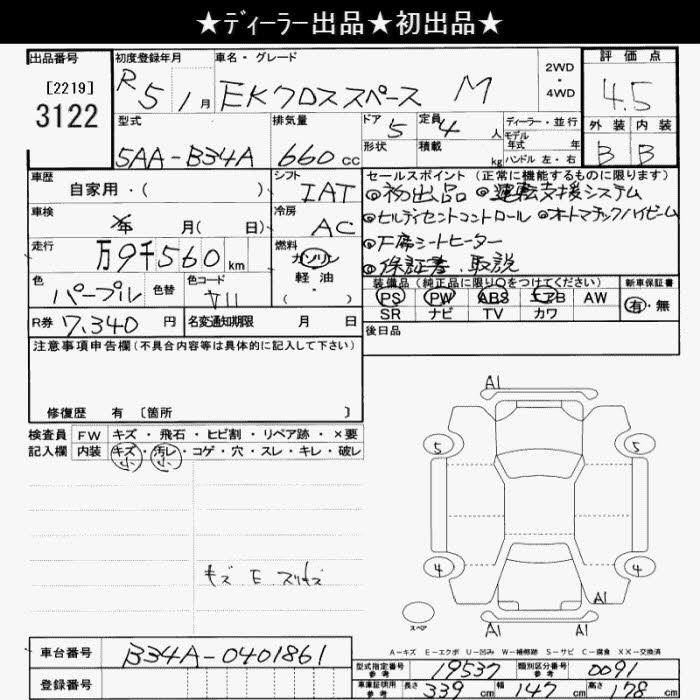 ★ディーラー出品★初出品★
出品番号
[2219]
3122
初度登録年月
R 5 1月
車名・グレード
EKクロススペース M
2WD
・
4WD
評価点
4.5
型式
5AA-B34A
排気量
660cc
ドア 5
形状
定員 4 人
積載 kg
ディーラー・並行
モデル年式 年
ハンドル 左・右
外装 内装
B B
車歴
自家用・( )
シフト
IAT
セールスポイント (正常に機能するものに限ります)
初出品 運転支援システム
車検
年 月( 日)
冷房
AC
ヒルディセントコントロール オートマチックハイビーム
走行
万9千560km
燃料
ガソリン
軽油
・( )
F席シートヒーター
保証書、取説
色
パープル
色替
色コード
装備品 (純正品に限り○をつけてください)
新車保証書
PS PW ABS エアB AW
SR ナビ TV カワ
有・無
R券 7,340円
名変通知期限 月 日
後日品
注意事項申告欄(不具合内容等は具体的に記入して下さい)
修復歴 有 〔箇所 〕
検査員
記入欄
FW キズ・飛石・ヒビ割・リペア跡・×要
内装 キズ・汚レ・コゲ・穴・スレ・キレ・破レ
小 小
A1
5 5
4 4
A1
スペア
A1 A1
A-キズ E-エクボ U-凹み W-補修跡 S-サビ C-腐食 XX-交換済
車台番号 B34A-0401861
登録番号
型式指定番号 参考 19537
類別区分番号 参考 0091
車庫証明用 参考 長さ 339cm 幅 147cm 高さ 178cm